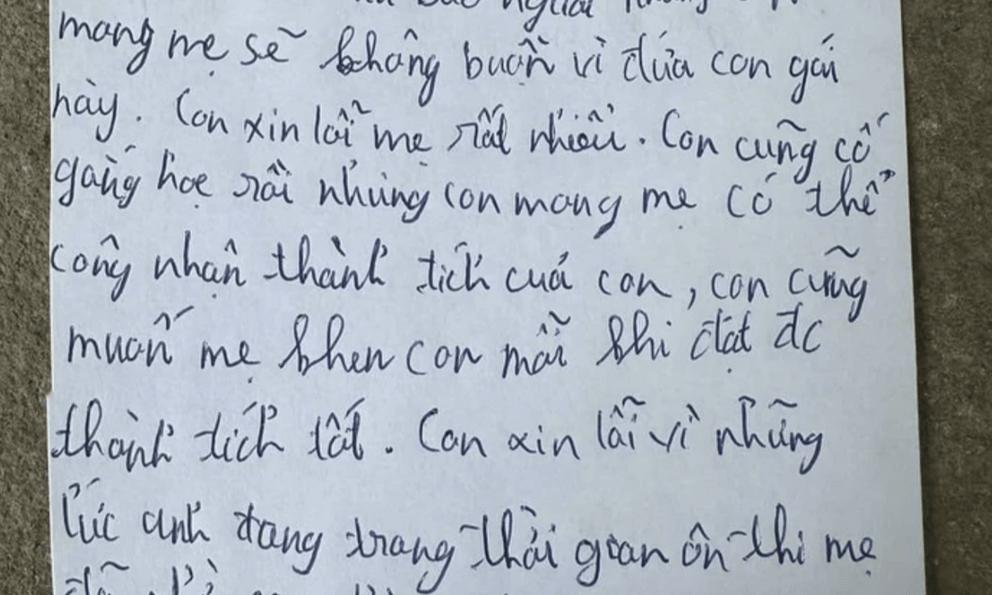 người
mong mẹ sẽ không buồn vì đứa con gái
này. Con xin lỗi mẹ rất nhiều. Con cũng cố
gắng học rồi nhưng con mong mẹ có thể
công nhận thành tích của con, con cũng
muốn mẹ khen con mỗi khi đạt đc
thành tích tốt. Con xin lỗi vì những
lúc anh đang trong thời gian ôn thi mẹ